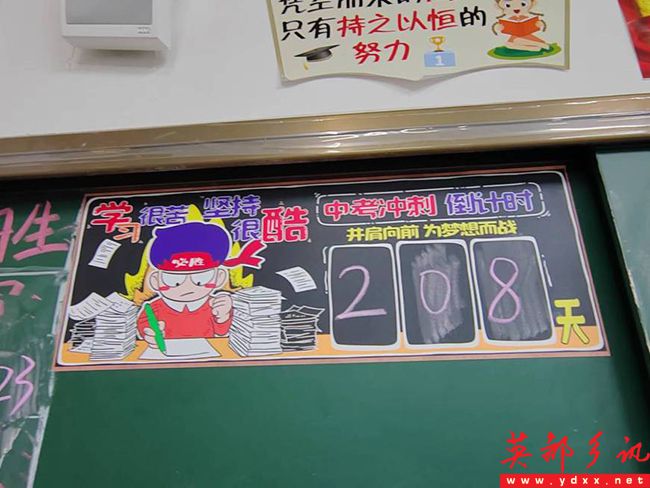 只有持之以恒的
努力
1
学习很苦 坚持很酷
必胜
中考冲刺 倒计时
并肩向前 为梦想而战
208天
生
23
英都乡讯
www.ydxx.net